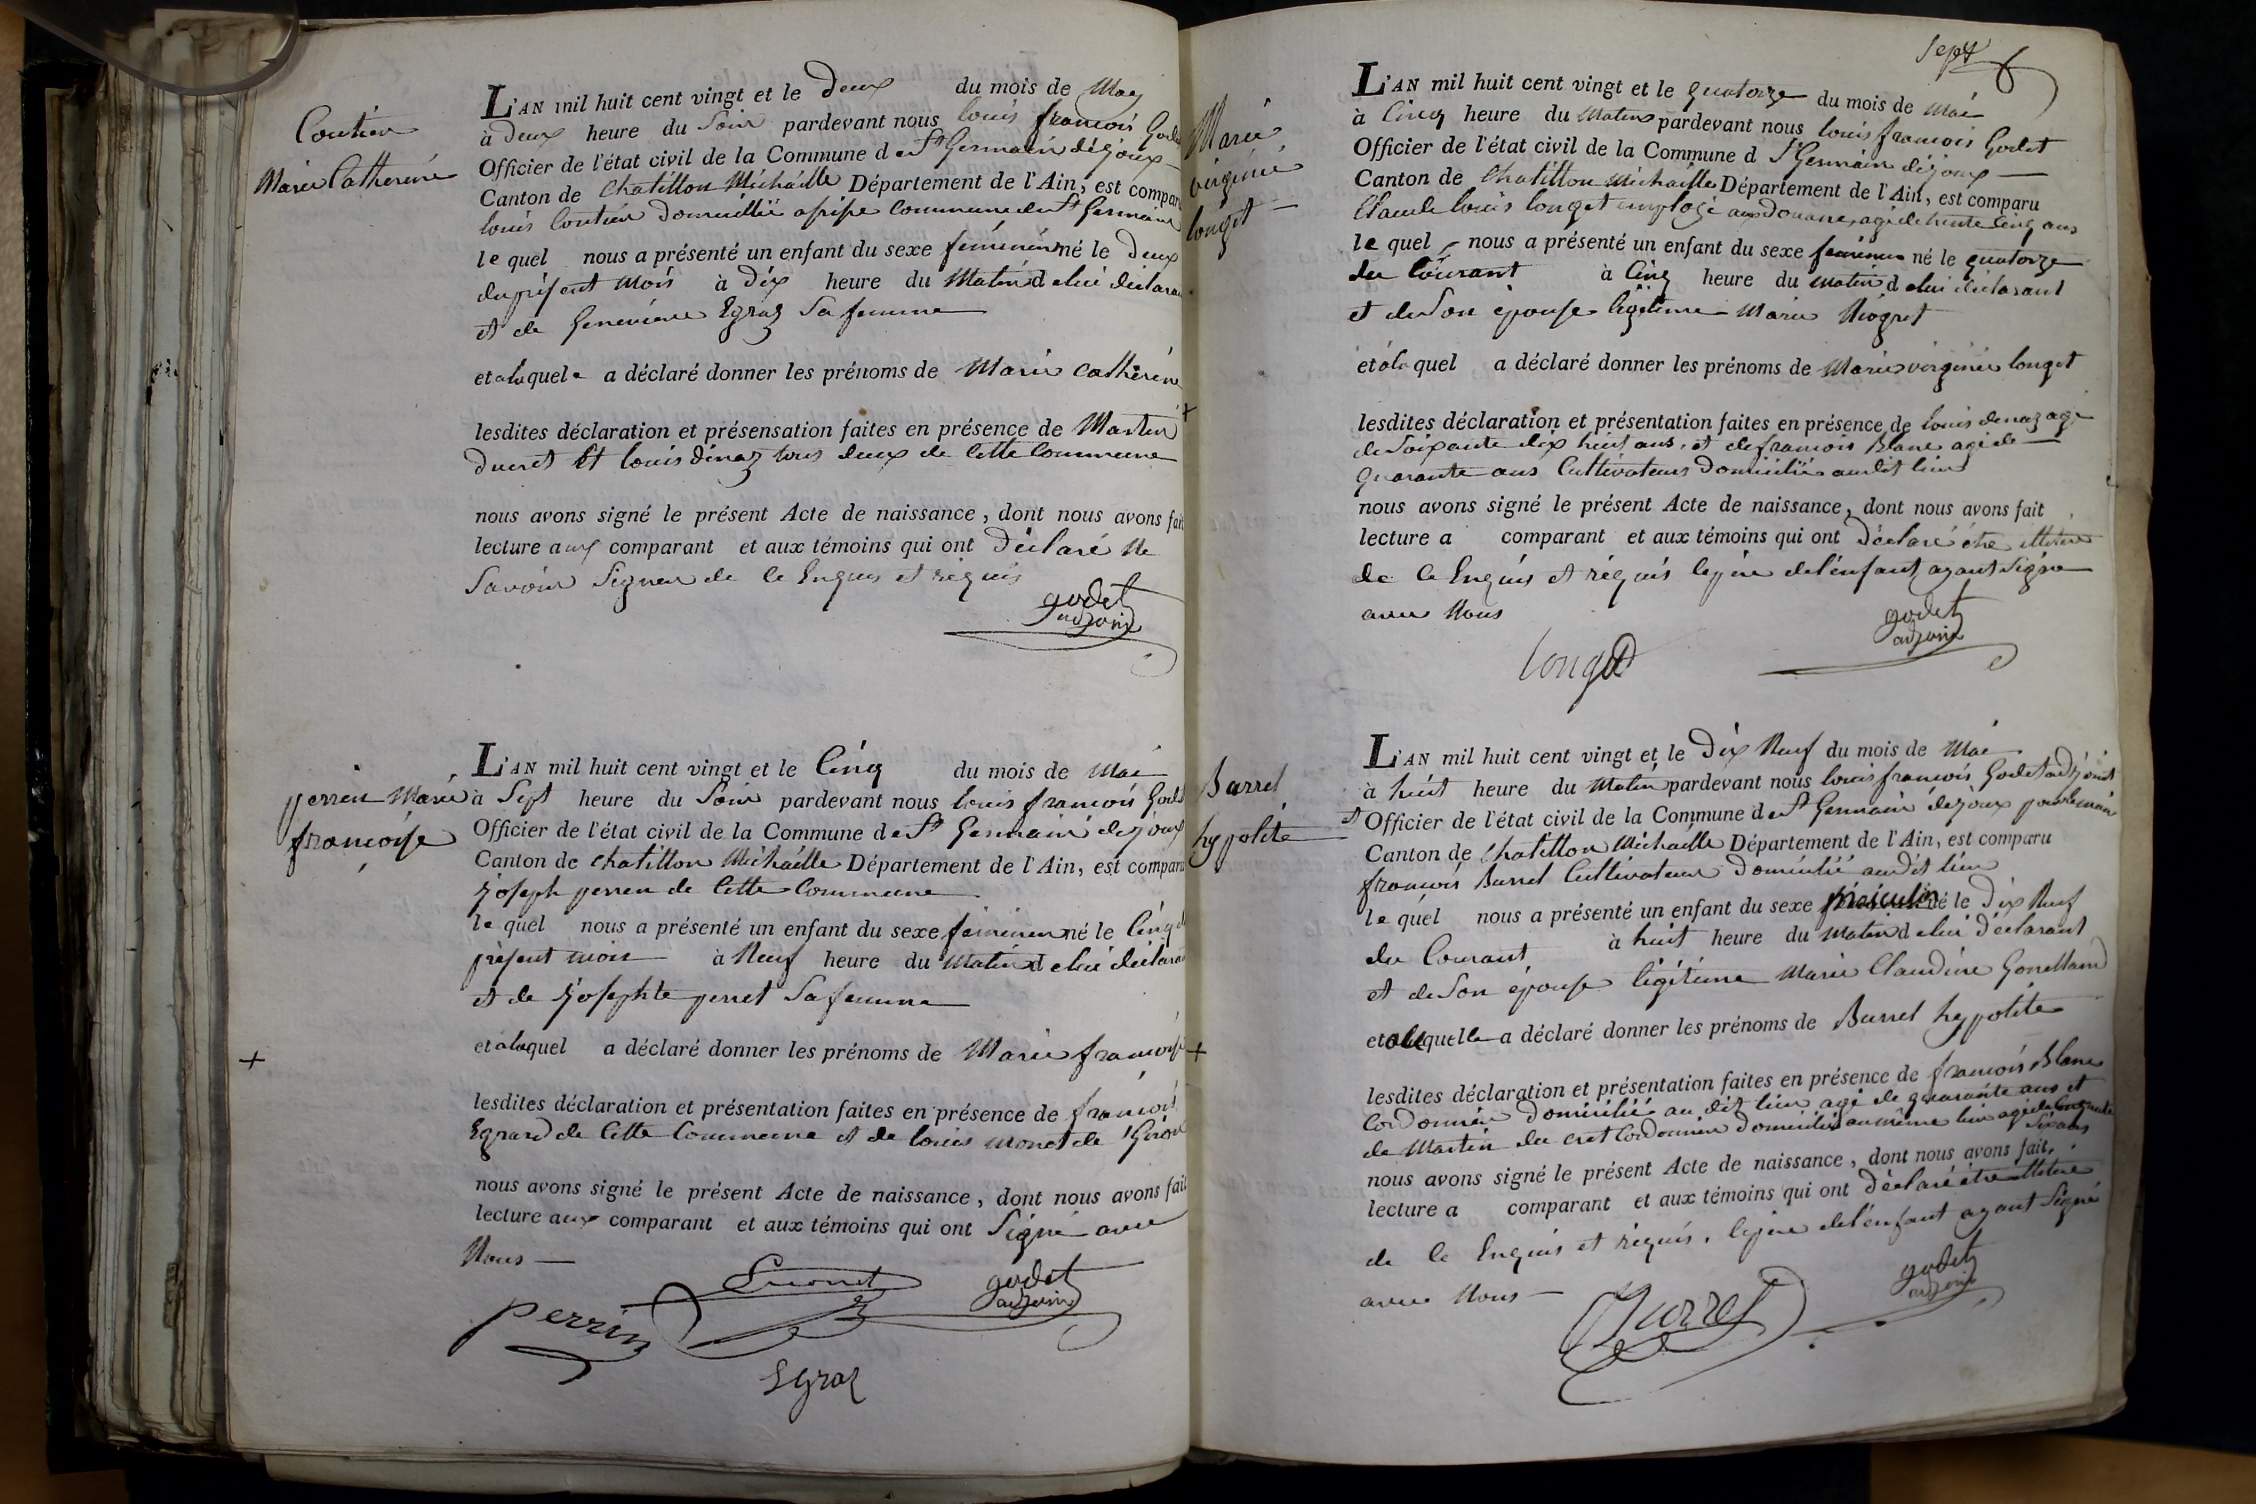 Coutier
Marie Catherine
L'AN mil huit cent vingt et le Deux du mois de May
à Deux heure du Soir pardevant nous louis francois Godet
Officier de l'état civil de la Commune de St Germain déjoux
Canton de Chatillon Michaille Département de l'Ain, est compar
louis Coutier Domicillié commune de St Germain
le quel nous a présenté un enfant du sexe feminin né le Deux
du présent Mois à Dix heure du Matin d elui déclarant
et de Genevieve Egraz Sa femme
et a laquele a déclaré donner les prénoms de Marie Catherine
lesdites déclaration et présensation faites en présence de Martin
Ducret Et louis dénaz tous deux de Cette Commune
nous avons signé le présent Acte de naissance, dont nous avons fait
lecture aux comparant et aux témoins qui ont Déclaré Ne
Savoir Signer de Ce Enquis et requis
godet
adjoint
perrin Marie
francoise
L'AN mil huit cent vingt et le Cinq du mois de Mai
à Sept heure du Soir pardevant nous louis francois Godet
Officier de l'état civil de la Commune de St Germain dejoux
Canton de Chatillon Michaille Département de l'Ain, est comparu
Joseph perrin de Cette Commune
le quel nous a présenté un enfant du sexe feminin né le Cinq du
présent mois à Neuf heure du Matin d elui déclarant
et de Josephte perret Sa femme
et a laquel a déclaré donner les prénoms de Marie francoise
lesdites déclaration et présentation faites en présence de francois
Egraz de Cette Commune et de louis monet de
nous avons signé le présent Acte de naissance, dont nous avons fait
lecture aux comparant et aux témoins qui ont Signé avec
Nous
perrin
godet
adjoint
Egraz
Sept
Marie
virginie
longet
L'AN mil huit cent vingt et le quatorze du mois de Mai
à Cinq heure du Matin pardevant nous louis francois Godet
Officier de l'état civil de la Commune d St Germain déjoux
Canton de Chatillon Michaille Département de l'Ain, est comparu
Claude louis longet employé aux Douane, agé de trente Cinq ans
le quel nous a présenté un enfant du sexe feminin né le quatorze
du Courant à Cinq heure du matin d elui déclarant
et de Son épouse légitime Marie Niogret
et à la quel a déclaré donner les prénoms de Marie virginie longet
lesdites déclaration et présentation faites en présence de louis denaz agé
de Soixante dix huit ans, et de francois Blanc agé de
quarante ans Cultivateurs Domicilié audit lieu
nous avons signé le présent Acte de naissance, dont nous avons fait
lecture a comparant et aux témoins qui ont déclaré étre illiteré
de Ce Enquis et réquis le père de l'enfant ayant Signé
avec Nous
longet
godet
adjoint
Barrel
hypolite
L'AN mil huit cent vingt et le Dix Neuf du mois de Mai
à huit heure du Matin pardevant nous louis francois Godet adjoint
Officier de l'état civil de la Commune de St Germain dejoux pour le maire
Canton de Chatillon Michaille Département de l'Ain, est comparu
francois Barrel Cultivateur Domicilié audit lieu
le quel nous a présenté un enfant du sexe masculin né le Dix Neuf
du Courant à huit heure du Matin d elui déclarant
et de Son épouse légitime Marie Claudine
et quelle a déclaré donner les prénoms de Barrel hypolite
lesdites déclaration et présentation faites en présence de francois Blanc
Cordonnier domicilié au dit lieu agé de quarante ans et
de Martin du cret Cordonnier Domicilié au même lieu agé de Cinquante
Six ans
nous avons signé le présent Acte de naissance, dont nous avons fait,
lecture a comparant et aux témoins qui ont déclaré étre illiteré
de Ce Enquis et réquis, le père de l'enfant ayant Signé
avec Nous
Barrel
godet
adjoint